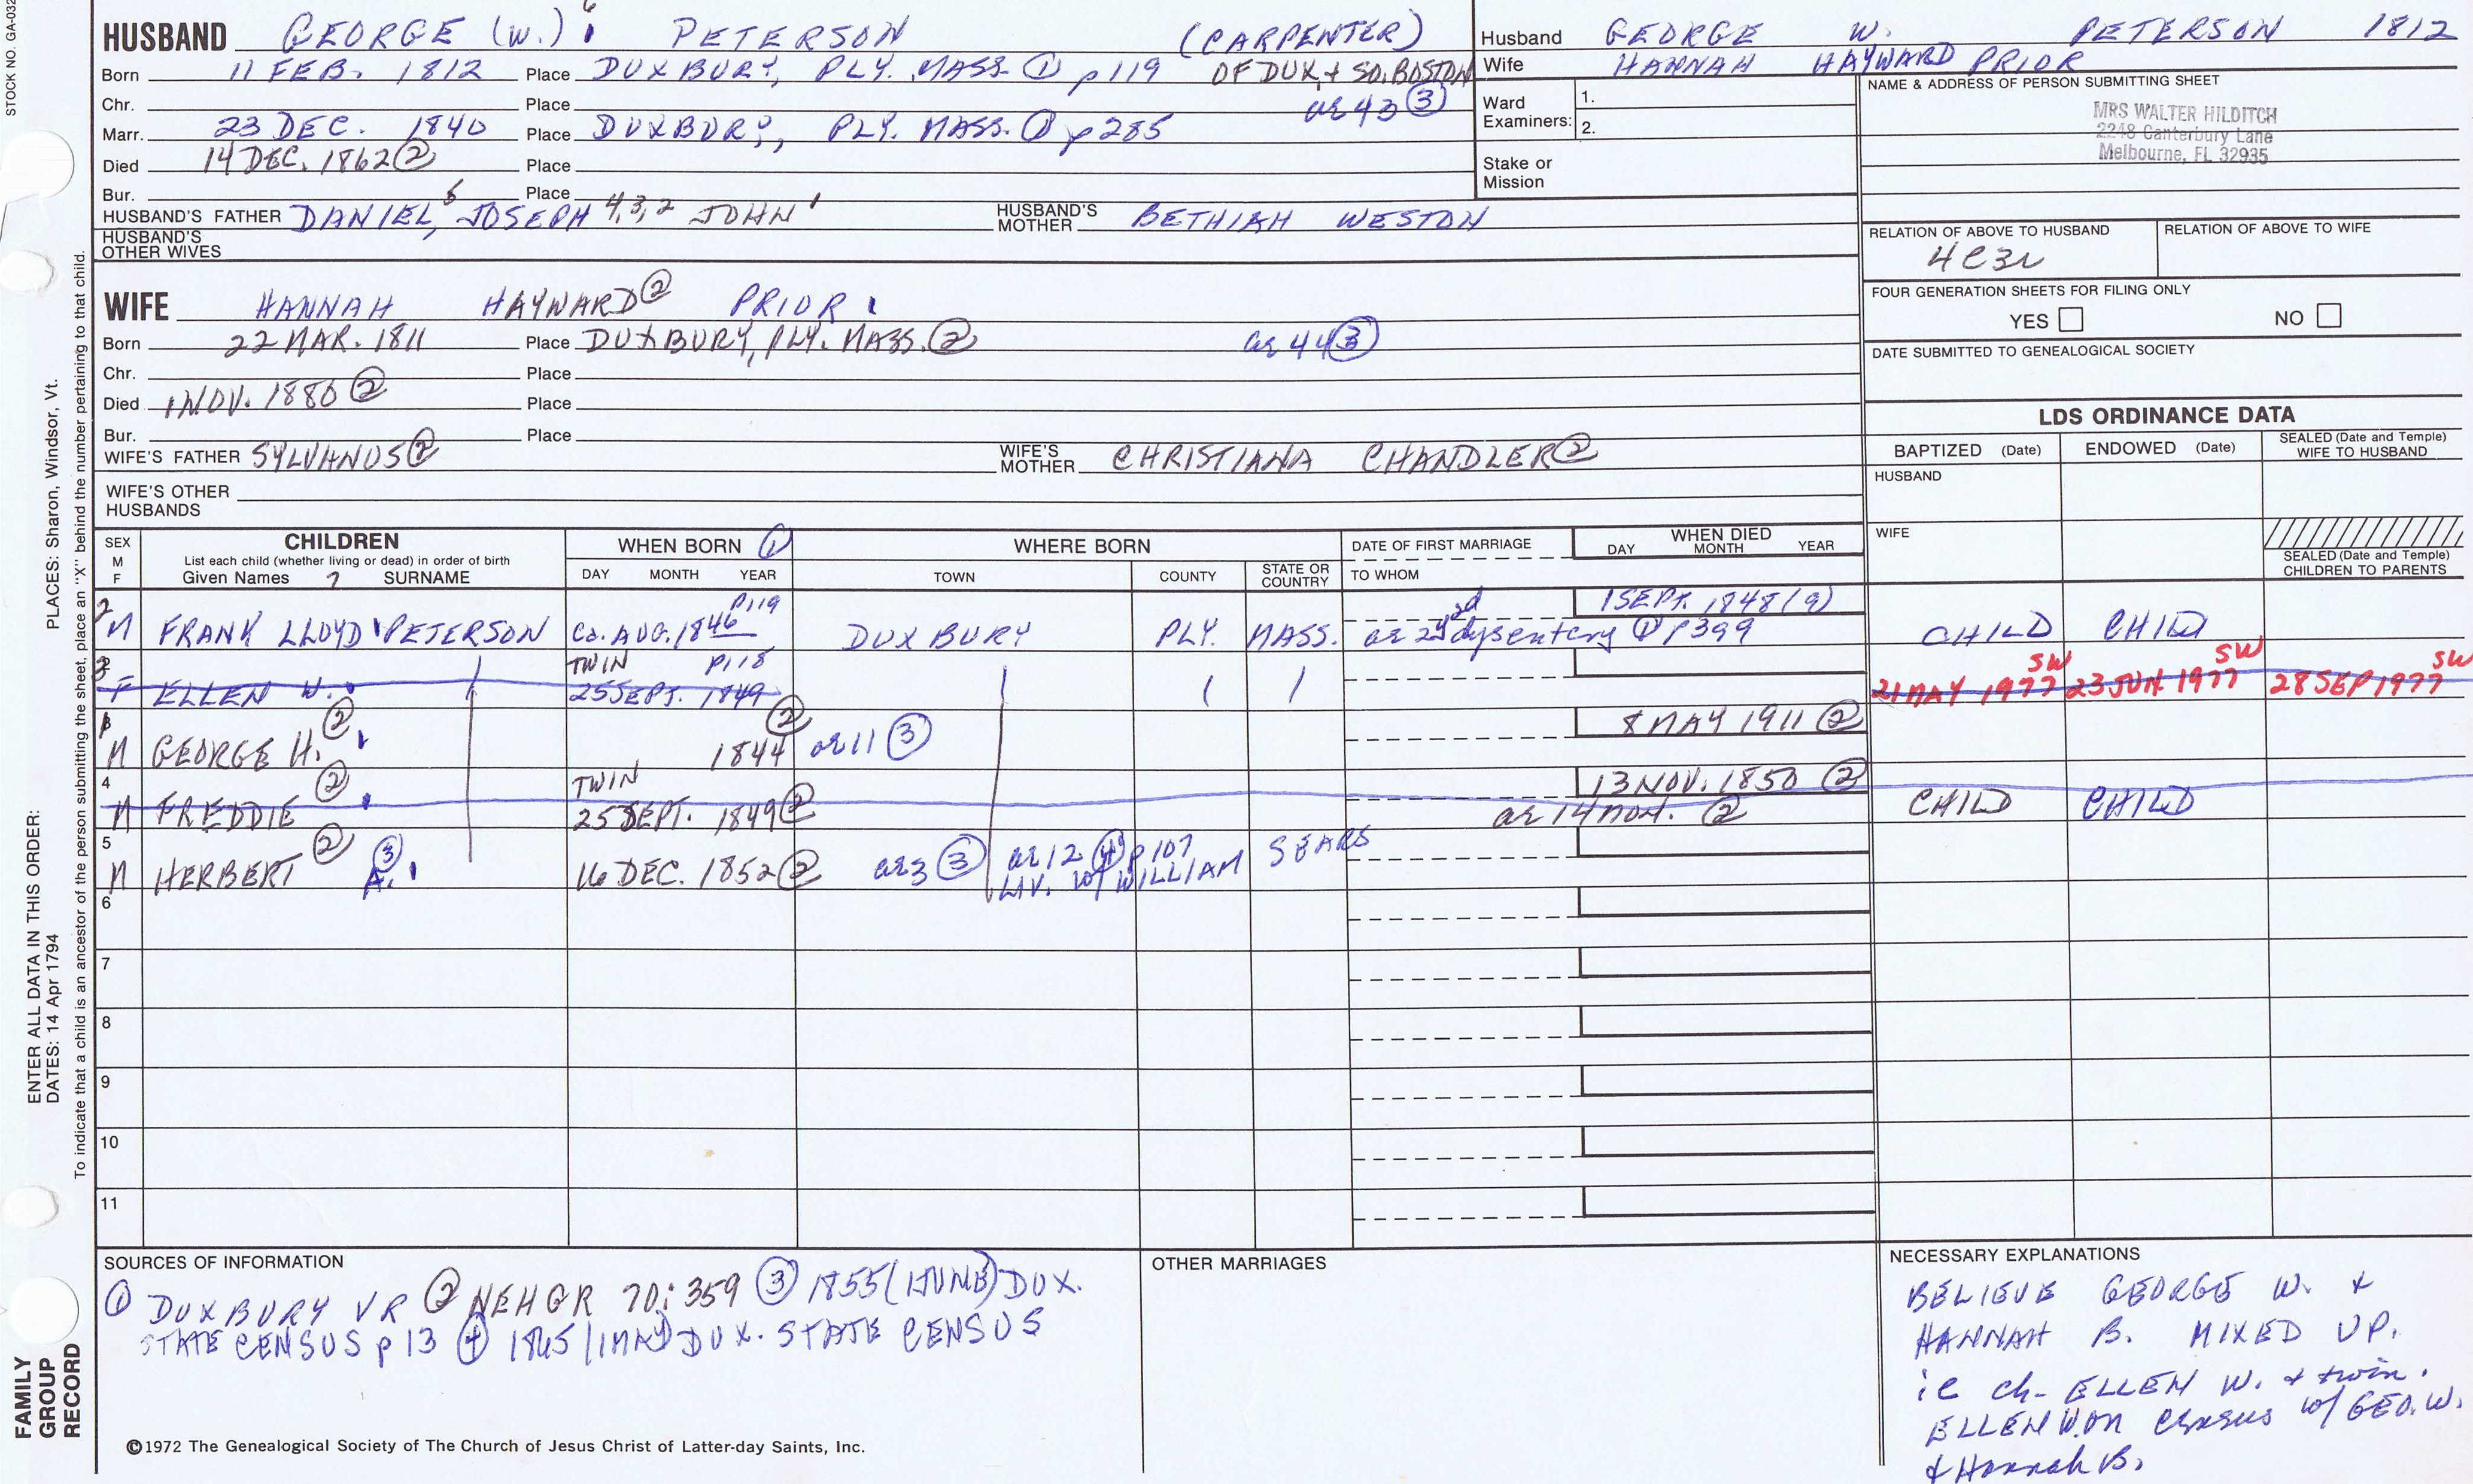 STOCK NO. GA-032
HUSBAND GEORGE (W.) 6 PETERSON (CARPENTER)
Born 11 FEB. 1812 Place DUXBURY, PLY. MASS. ① p119 OF DUX + SO. BOSTON
Chr. Place ae 43 ③
Marr. 23 DEC. 1840 Place DUXBURY, PLY. MASS. ① p285
Died 14 DEC. 1862 ② Place
Bur. Place
HUSBAND'S FATHER DANIEL 5, JOSEPH 4,3,2 JOHN 1 HUSBAND'S MOTHER BETHIAH WESTON
HUSBAND'S OTHER WIVES
Husband GEORGE W. PETERSON 1812
Wife HANNAH HAYWARD PRIOR
Ward Examiners: 1.
2.
Stake or Mission
NAME & ADDRESS OF PERSON SUBMITTING SHEET
MRS WALTER HILDITCH
2248 Canterbury Lane
Melbourne, FL 32935
RELATION OF ABOVE TO HUSBAND RELATION OF ABOVE TO WIFE
4C3R
FOUR GENERATION SHEETS FOR FILING ONLY
YES NO
DATE SUBMITTED TO GENEALOGICAL SOCIETY
WIFE HANNAH HAYWARD ② PRIOR
Born 22 MAR. 1811 Place DUXBURY, PLY. MASS. ② ae 44 ③
Chr. Place
Died 1 NOV. 1880 ② Place
Bur. Place
WIFE'S FATHER SYLVANUS ② WIFE'S MOTHER CHRISTIANA CHANDLER ②
WIFE'S OTHER HUSBANDS
LDS ORDINANCE DATA
BAPTIZED (Date) ENDOWED (Date) SEALED (Date and Temple) WIFE TO HUSBAND
HUSBAND
WIFE
SEALED (Date and Temple) CHILDREN TO PARENTS
SEX M F CHILDREN List each child (whether living or dead) in order of birth Given Names SURNAME
WHEN BORN ① DAY MONTH YEAR
WHERE BORN TOWN COUNTY STATE OR COUNTRY
DATE OF FIRST MARRIAGE TO WHOM
WHEN DIED DAY MONTH YEAR
2 P119 1 SEPT. 1848 (9)
M FRANK LLOYD PETERSON Ca. AUG. 1846 DUXBURY PLY. MASS. ae 2y dysentery ① P399 CHILD CHILD
3 TWIN P118 SW SW SW
F ELLEN W. 25 SEPT. 1849 21 MAY 1977 23 JUN 1977 28 SEP 1977
1 8 MAY 1911 ②
M GEORGE H. ② 1844 ② ae 11 ③
4 TWIN 13 NOV. 1850 ②
M FREDDIE ② 25 SEPT. 1849 ② ae 14 mon. ② CHILD CHILD
5
M HERBERT ② A. ③ 16 DEC. 1852 ② ae 3 ③ ae 12 ④ p107
LIV. w/ WILLIAM SEARS
6
7
8
9
10
11
SOURCES OF INFORMATION
① DUXBURY VR ② NEHGR 70:359 ③ 1855 (1 JUNE) DUX.
STATE CENSUS p 13 ④ 1865 (1 MAY) DUX. STATE CENSUS
OTHER MARRIAGES
NECESSARY EXPLANATIONS
BELIEVE GEORGE W. +
HANNAH B. MIXED UP.
ie ch- ELLEN W. + twin.
ELLEN W. on census w/ GEO. W.
+ Hannah B.
©1972 The Genealogical Society of The Church of Jesus Christ of Latter-day Saints, Inc.
FAMILY
GROUP
RECORD
ENTER ALL DATA IN THIS ORDER: PLACES: Sharon, Windsor, Vt.
DATES: 14 Apr 1794
To indicate that a child is an ancestor of the person submitting the sheet, place an "X" behind the number pertaining to that child.